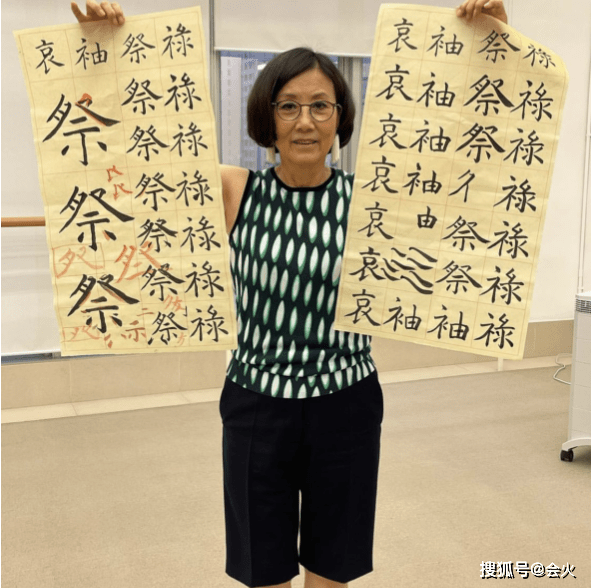 哀袖祭祿
祭祿
祭祭祿
祭祿
祭祭祿
祭祭祿
祭祭祿
哀袖祭祿
哀袖祭祿
哀袖祭祿
哀袖祿
哀由祭祿
哀祭祿
哀袖袖祿
搜狐号@会火